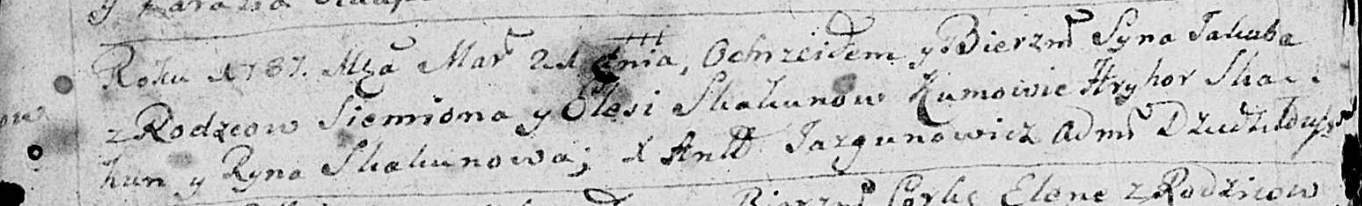 y
Roku 1787. Mca Mar 21 dnia, Ochrzciłem y Bierzm Syna Jakuba
z Rodzcow Siemiona y Olesi Skakunow Kumowie Hryhor Ska-
kun y Ryna Skakunowa; X Antt Jazgunowicz Adm
Bierzm Corkę Elonę z Rodzicow